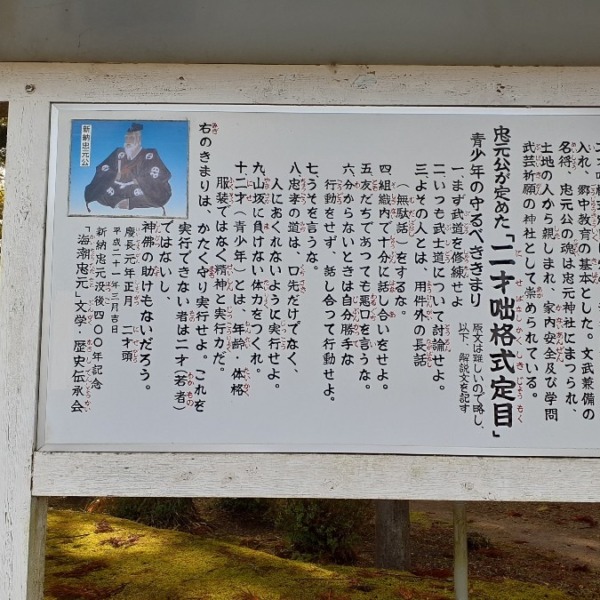 入れ、郷中教育の基本とした。文武兼備の
名将、忠元公の魂は忠元神社にまつられ、
土地の人から親しまれ、家内安全及び学問
武芸祈願の神社として崇められている。
忠元公が定めた「二才咄格式定目」
原文は難しいので略し、
以下、解説文を記す
青少年の守るべききまり
一、まず武道を修練せよ
二、いつも武士道について討論せよ。
三、よその人とは、用件外の長話
(無駄話)をするな。
四、組織内で十分に話し合いをせよ。
五、友だちであっても悪口を言うな。
六、分からないときは自分勝手な
行動をせず、話し合って行動せよ。
七、うそを言うな。
八、忠孝の道は、口先だけでなく、
人におくれないように実行せよ。
九、山坂に負けない体力をつくれ。
十、二才(青少年)とは、年齢、体格
服装ではなく精神と実行力だ。
右のきまりは、かたく守り実行せよ。これを
実行できない者は二才(若者)
ではないし、
神佛の助けもないだろう。
慶長元年正月 二才頭
平成二十一年三月吉日
新納忠元没後四〇〇年記念
「海潮忠元」文学・歴史伝承会
新納忠元公